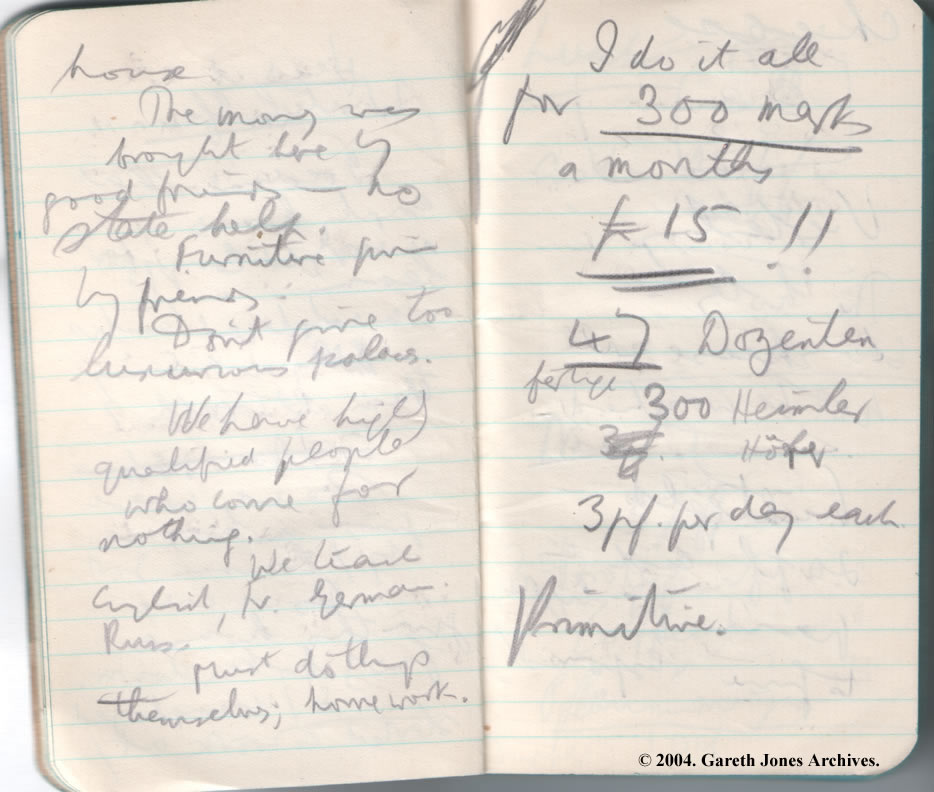 house.
The money was
brought here by
good friends — no
state help.
Furniture given
by friends.
Don't give too
luxurious palaces.
We have highly
qualified people
who come for
nothing.
We teach
English, Fr. German
Russ.
Must do things
themselves; homework.
I do it all
for 300 marks
a months
£15 !!
47 Dozenten
300
Hörer
3 pf. per day each
Primitive.
© 2004. Gareth Jones Archives.